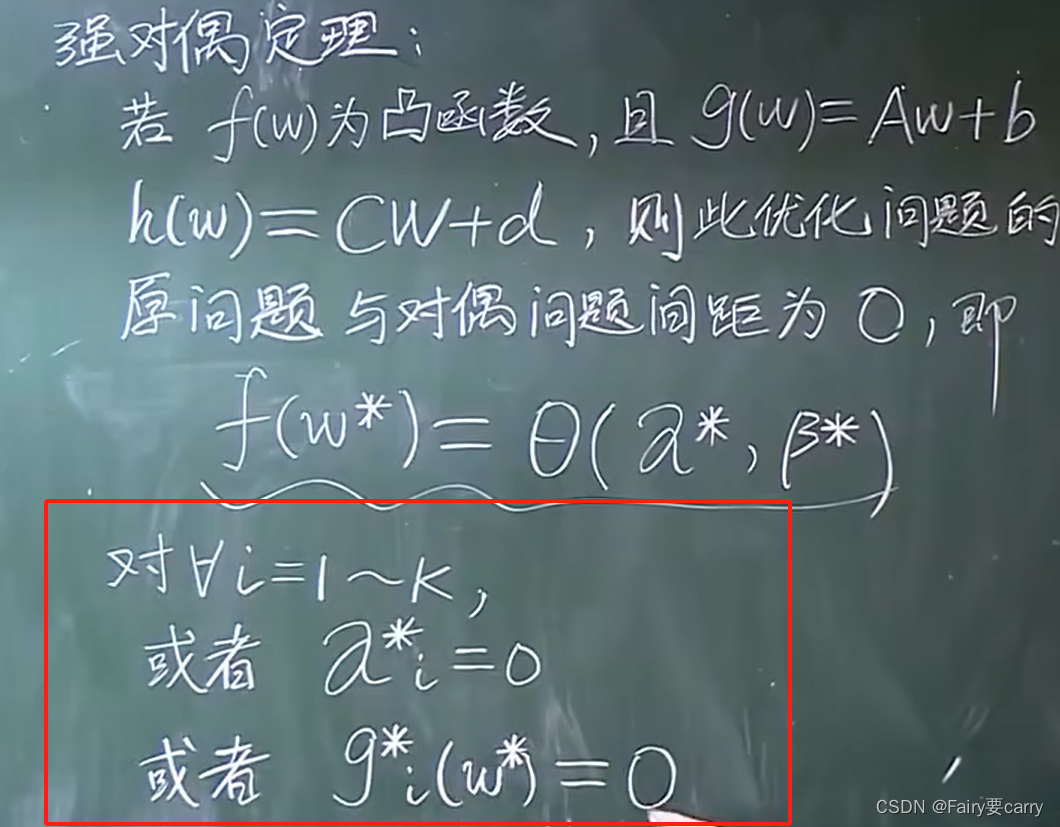 强对偶定理:
若 f(w)为凸函数,且 g(w)=Aw+b
h(w)=CW+d,则此优化问题的
原问题与对偶问题间距为0,即
f(w*)=θ(α*,β*)
对∀i=1~K,
或者 α*i=0
或者 g*i(w*)=0
CSDN @Fairy要carry